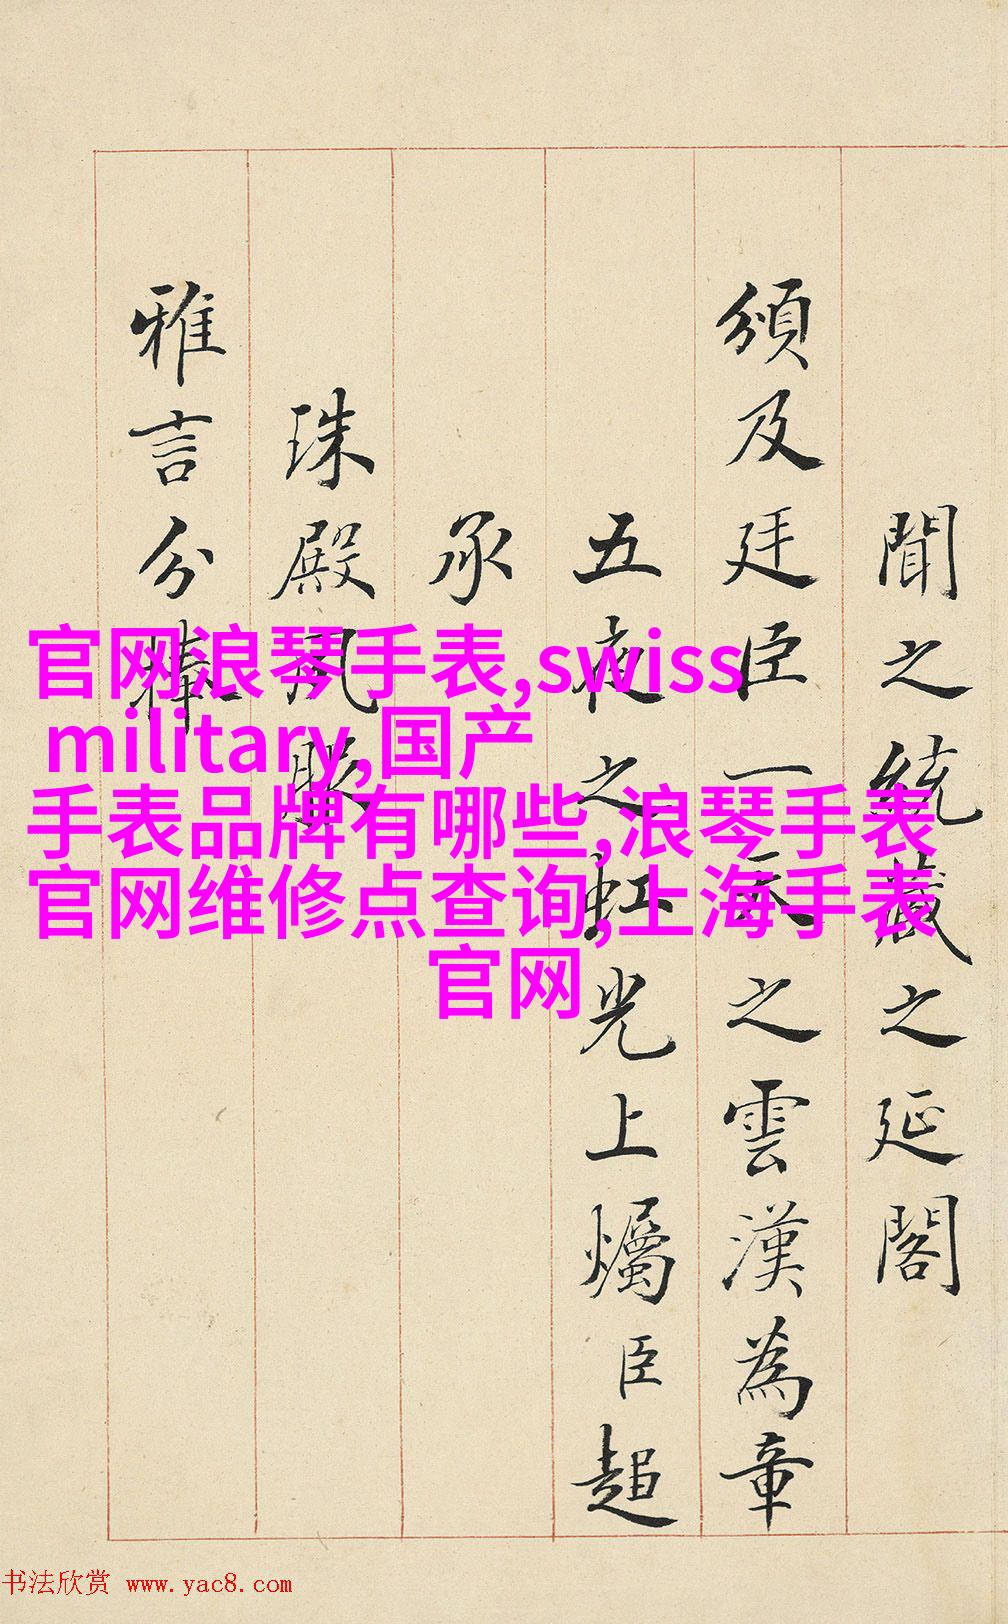 聞之統藏之延閣
頒及廷臣一天之雲漢為章
五夜之虹光上爥臣超
承
珠殿
雅言分
官网浪琴手表,swiss
military,国产
手表品牌有哪些,浪琴手表
官网维修点查询,上海手表
官网
书法欣赏 www.yac8.com